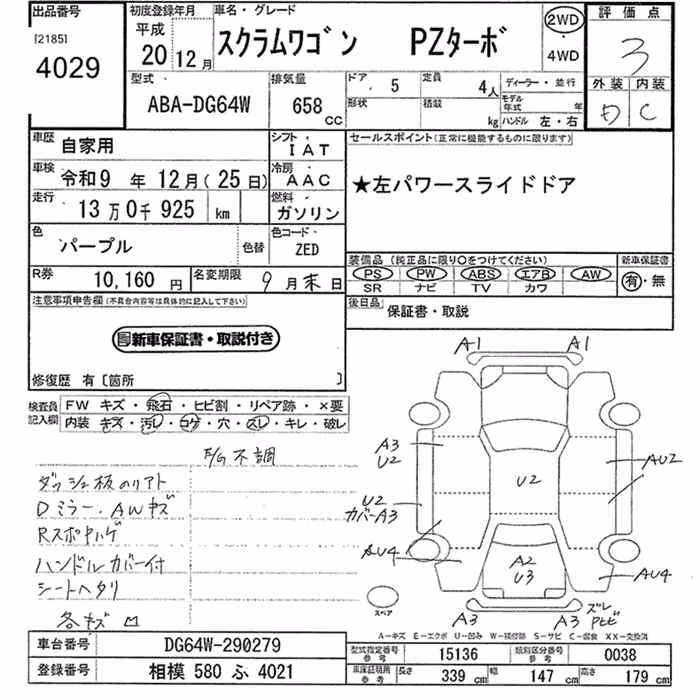 出品番号 初度登録年月 車名・グレード 評価点
[2185] 平成 スクラムワゴン PZターボ 2WD・4WD 3
4029 20 12月
型式 排気量 ドア 5 定員 4人 ディーラー・並行 外装 内装
ABA-DG64W 658 CC 形状 積載 kg モデル年式 年 D C
ハンドル 左・右
車歴 自家用 シフト IAT セールスポイント(正常に機能するものに限ります)
車検 令和9年12月(25日) 冷房 AAC ★左パワースライドドア
走行 13万0千925 km 燃料 ガソリン
色 パープル 色替 色コード ZED
装備品(純正品に限り○をつけてください) 新車保証書
R券 10,160円 名変期限 9月末日 PS PW ABS エアB AW 有・無
SR ナビ TV カワ
注意事項申告欄(不具合内容等は具体的に記入して下さい) 後日品 保証書・取説
新車保証書・取説付き
修復歴 有〔箇所 〕
検査員記入欄 FW キズ・飛石・ヒビ割・リペア跡・×要
内装 キズ・汚レ・コゲ・穴・スレ・キレ・破レ
E/G不調
ダッシュ板のリアト
Dミラー、AWキズ
Rスポヤハゲ
ハンドルカバー付
シートヘタリ
各キズ凹
A1 A1
A3 U2 AU2
U2 U2
カバーA3
AU4 A2 U3 AU4
スペア A3 A3 ズレ
A-キズ E-エクボ U-凹み W-補修跡 S-サビ C-腐食 XX-交換済
車台番号 DG64W-290279 型式指定番号 参考 15136 類別区分番号 参考 0038
登録番号 相模 580 ふ 4021 車庫証明用 参考 長さ 339 cm 幅 147 cm 高さ 179 cm